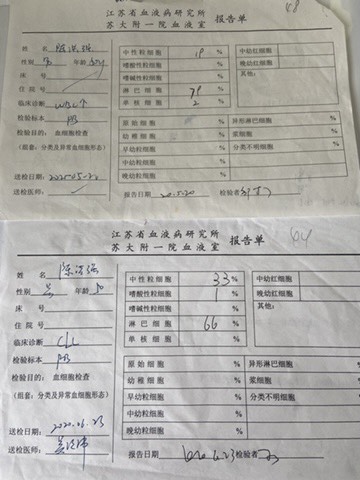 江苏省血液病研究所
苏大附一院血液室 报告单
姓 名
性别 男 年龄
床 号
住 院 号
临床诊断 WBC↑
检验标本 PB
检验目的：血细胞检查
(组套：分类及异常血细胞形态)
送检日期：
送检医师：
中性粒细胞 19 %
嗜酸性粒细胞 %
嗜碱性粒细胞 %
淋巴细胞 79 %
单核细胞 2 %
中幼红细胞
晚幼红细胞
其他：
原始细胞 %
幼稚细胞 %
早幼粒细胞 %
中幼粒细胞 %
晚幼粒细胞 %
异形淋巴细胞 %
浆细胞 %
分类不明细胞 %
报告日期 20.5.20 检验者
江苏省血液病研究所
苏大附一院血液室 报告单
64
姓 名 陈洪强
性别 男 年龄 50
床 号
住 院 号
临床诊断 CLL
检验标本 PB
检验目的：血细胞检查
(组套：分类及异常血细胞形态)
送检日期：2020.6.23
送检医师：
中性粒细胞 33 %
嗜酸性粒细胞 1 %
嗜碱性粒细胞 %
淋巴细胞 66 %
单核细胞 %
中幼红细胞
晚幼红细胞
其他：
原始细胞 %
幼稚细胞 %
早幼粒细胞 %
中幼粒细胞
晚幼粒细胞
异形淋巴细胞
浆细胞
分类不明细胞
报告日期 检验者